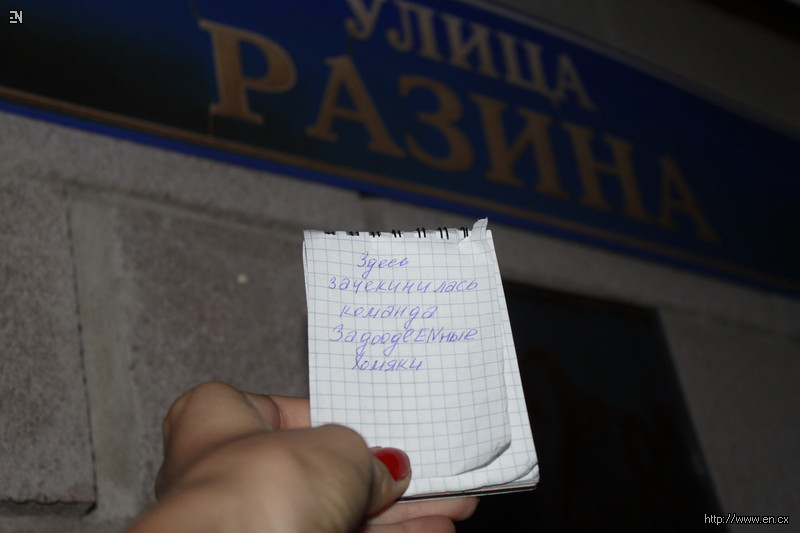 EN
УЛИЦА
РАЗИНА
Здесь
зачекинилась
команда
ЗадоодеENные
Хомяки
http://www.en.cx